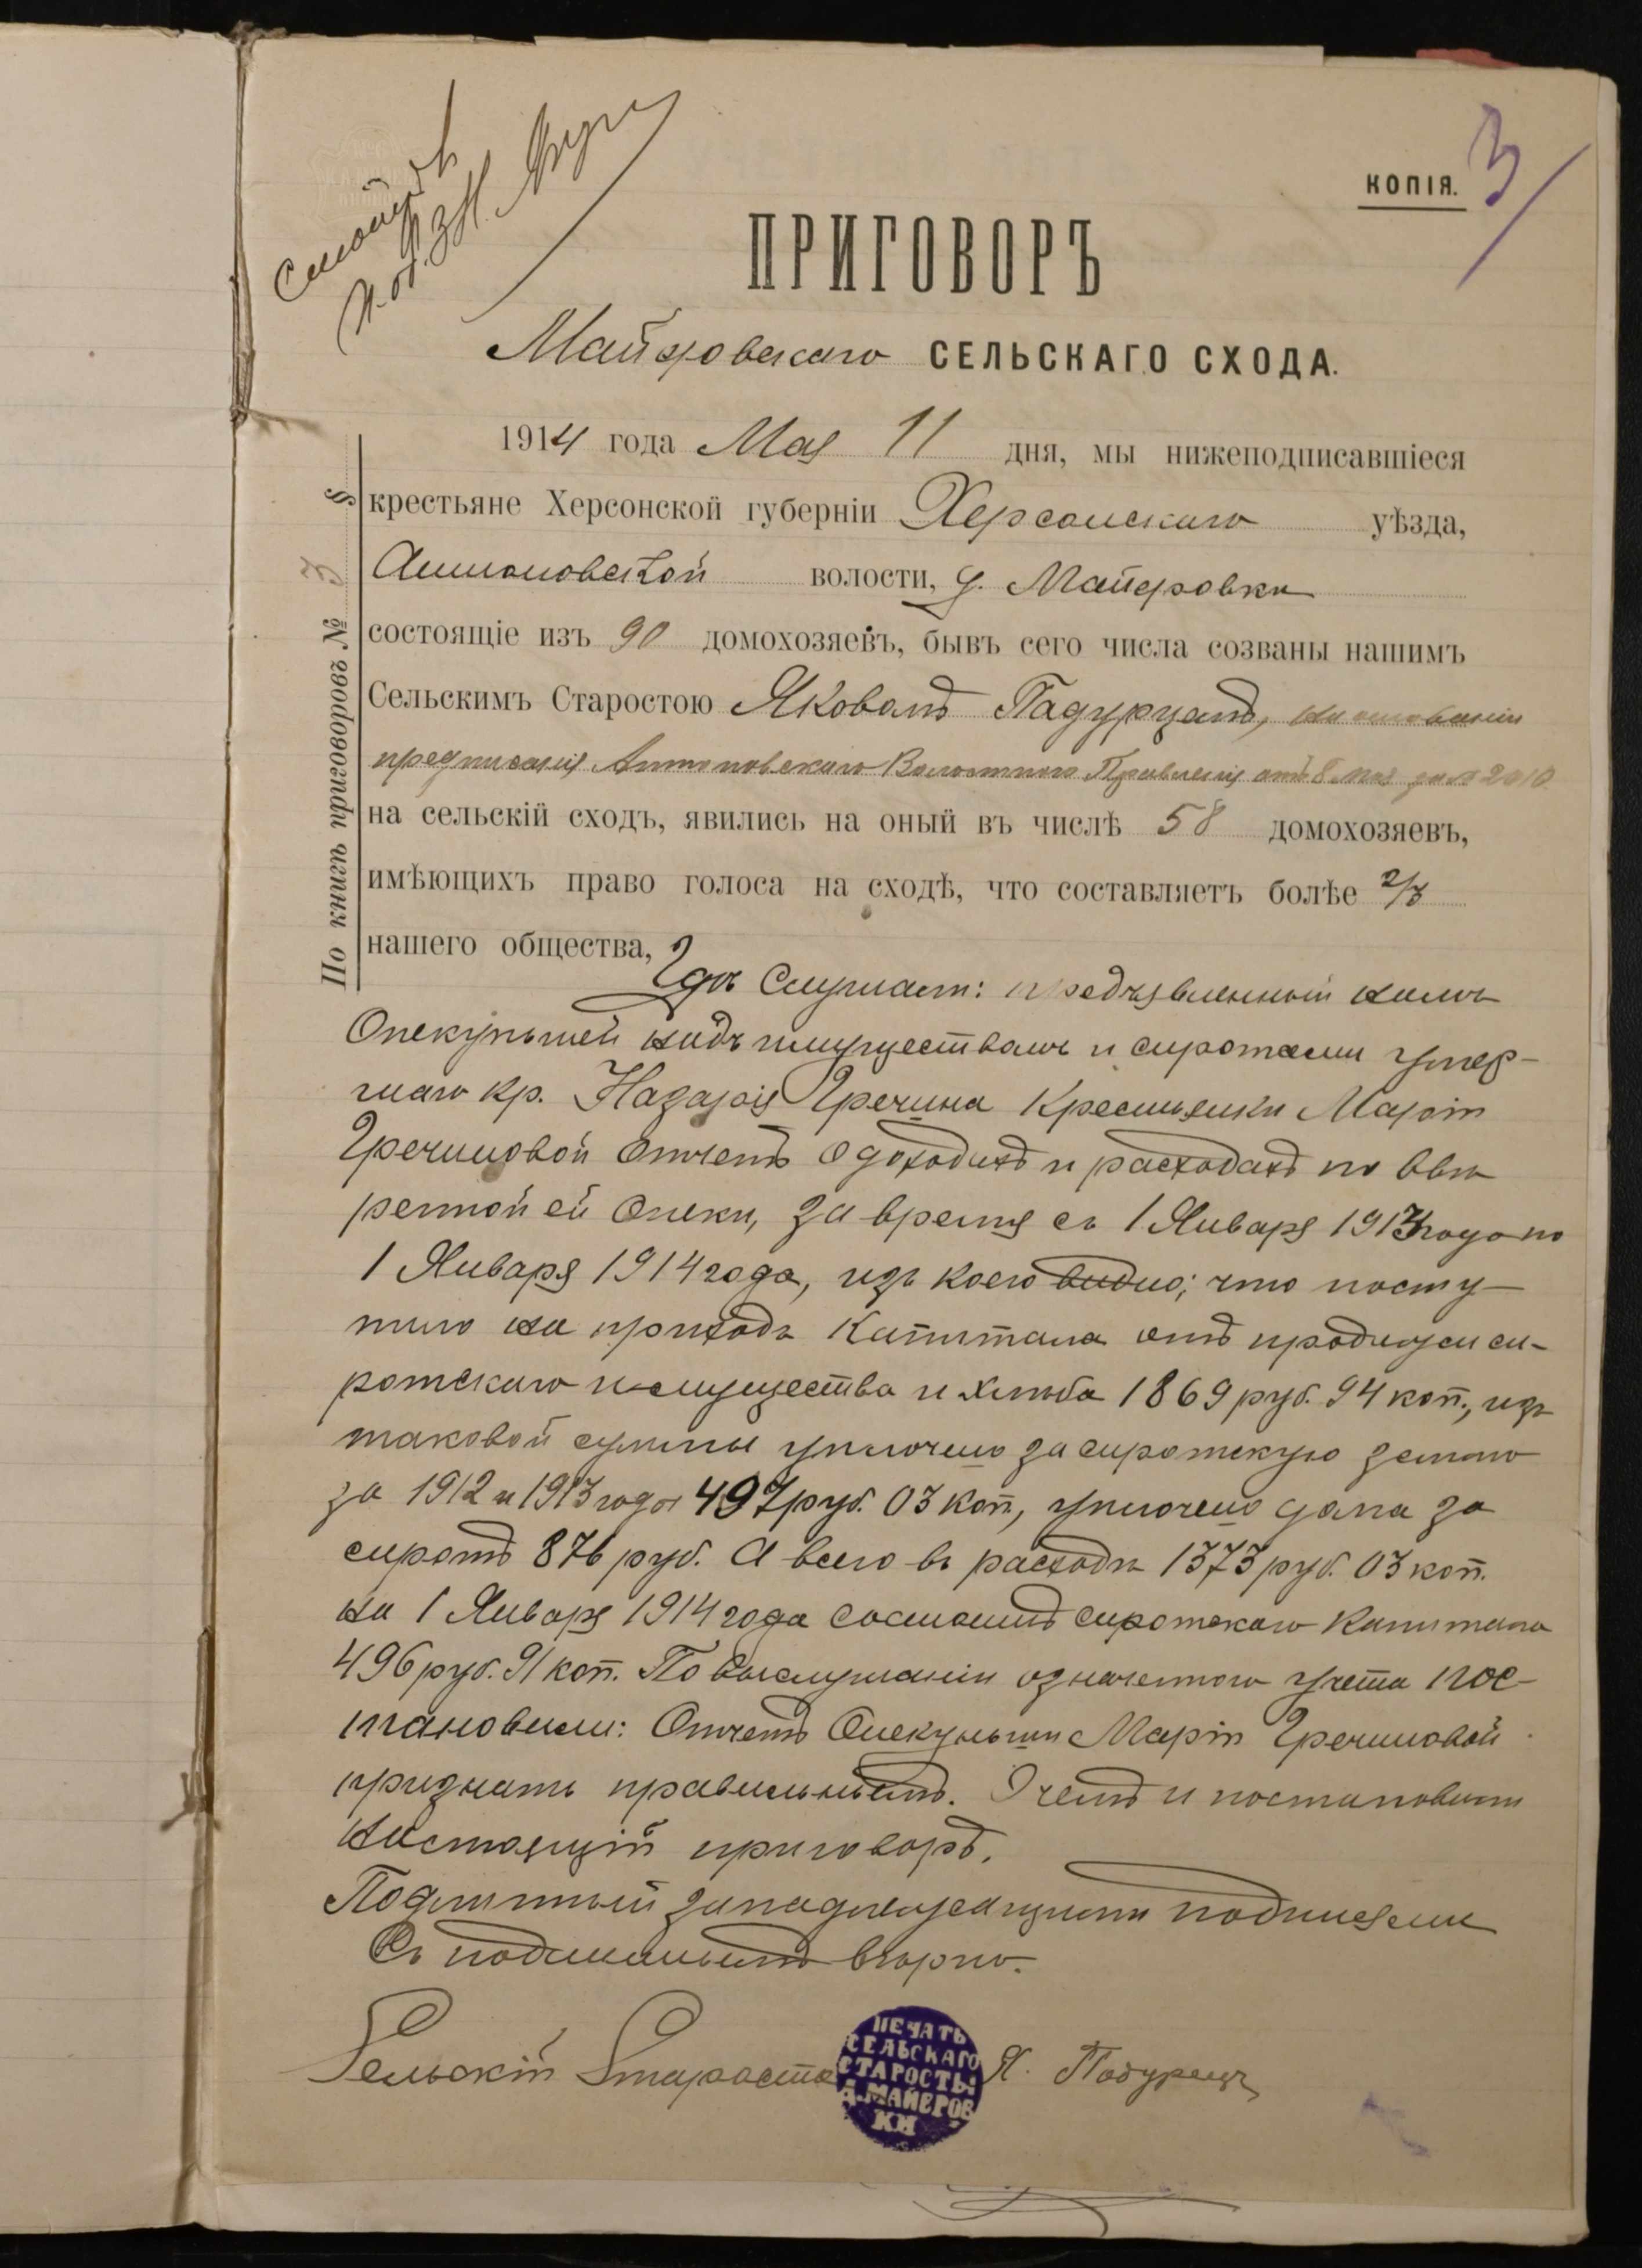 КОПІЯ.
3
ПРИГОВОРЪ
Майеровскаго СЕЛЬСКАГО СХОДА.
По книгѣ приговоровъ № 3 §
1914 года Мая 11 дня, мы нижеподписавшіеся
крестьяне Херсонской губерніи Херсонскаго уѣзда,
Антоновской волости, д. Майеровки
состоящіе изъ 90 домохозяевъ, бывъ сего числа созваны нашимъ
Сельскимъ Старостою Яковомъ Падурцемъ, на основаніи
предписанія Антоновскаго Волостного Правленія отъ 8 мая за № 2010
на сельскій сходъ, явились на оный въ числѣ 58 домохозяевъ,
имѣющихъ право голоса на сходѣ, что составляетъ болѣе 2/3
нашего общества,
Гдѣ Слушали: предъявленный намъ
Опекуншей надъ имуществомъ и сиротами умер-
шаго кр. Назарія Гречина Крестьянки Маріи
Гречиновой отчетъ о доходахъ и расходахъ по ввѣ
ренной ей опеки, за время съ 1 Января 1913 года по
1 Января 1914 года, изъ коего видно; что посту-
пило на приходъ Капитала отъ продажи си-
ротскаго имущества и хлѣба 1869 руб. 94 коп., изъ
таковой суммы уплочено за сиротскую землю
за 1912 и 1913 года 497 руб. 03 коп, уплочено долга за
сиротъ 876 руб. А всего въ расходѣ 1373 руб. 03 коп.
на 1 Января 1914 года состоитъ сиротскаго Капитала
496 руб. 91 коп. По выслушаніи означенного учета пос-
тановили: Отчетъ Опекунши Маріи Гречиновой
признать правильнымъ. О чемъ и постановили
настоящій приговоръ.
Подлинный за надлежащими подписями
Съ подлиннымъ вѣрно.
Сельскій Староста Я. Падурецъ
ПЕЧАТЬ
СЕЛЬСКАГО
СТАРОСТЫ
Д. МАЙЕРОВ
КИ